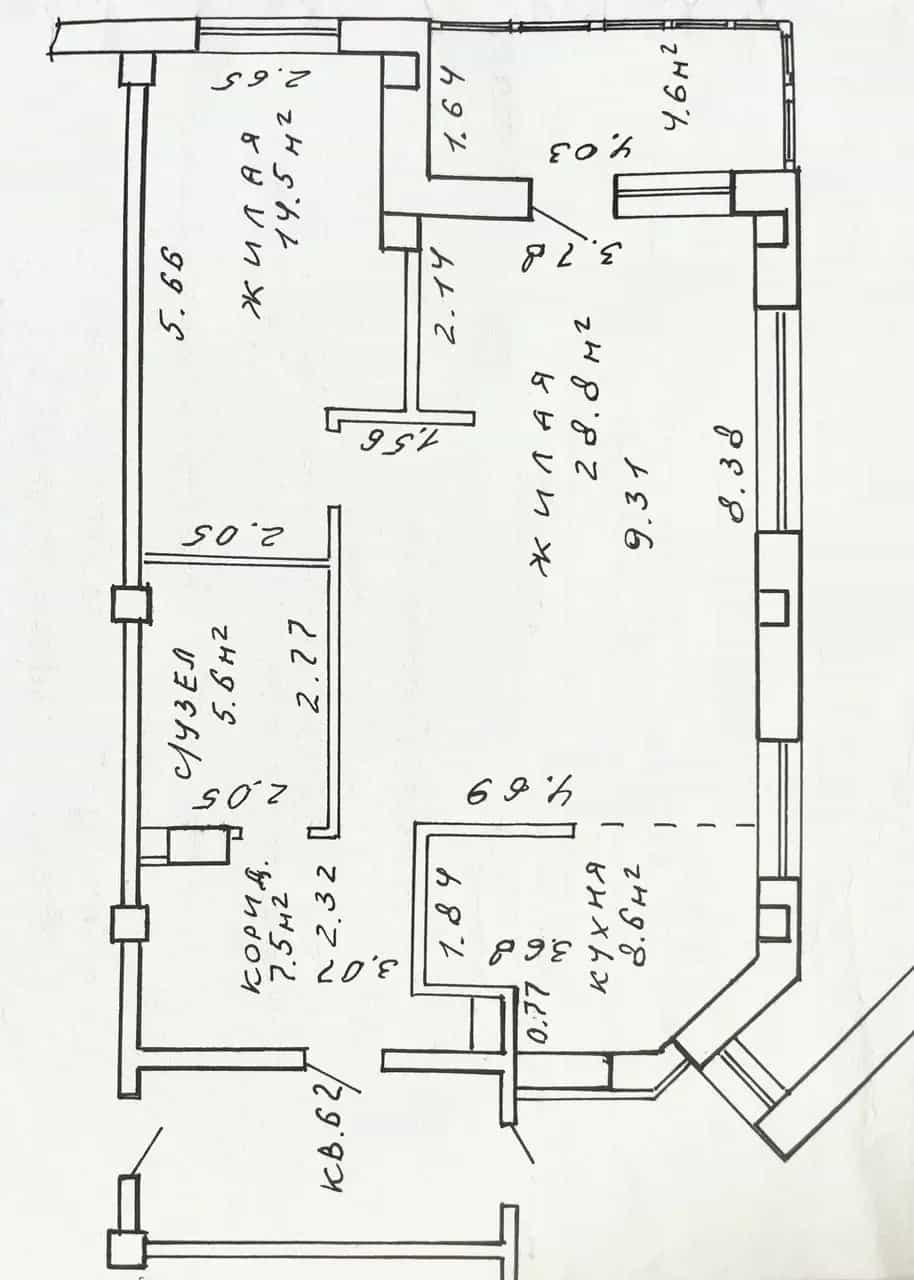 2.65
ЖИЛАЯ
14.5 м²
5.66
1.64
4.03
4.6 м²
3.78
2.14
1.56
ЖИЛАЯ
28.8 м²
9.31
8.38
2.05
С/УЗЕЛ
5.6 м²
2.77
2.05
4.69
КОРИД.
7.5 м²
2.32
3.07
1.84
3.68
КУХНЯ
8.6 м²
0.77
КВ. 62